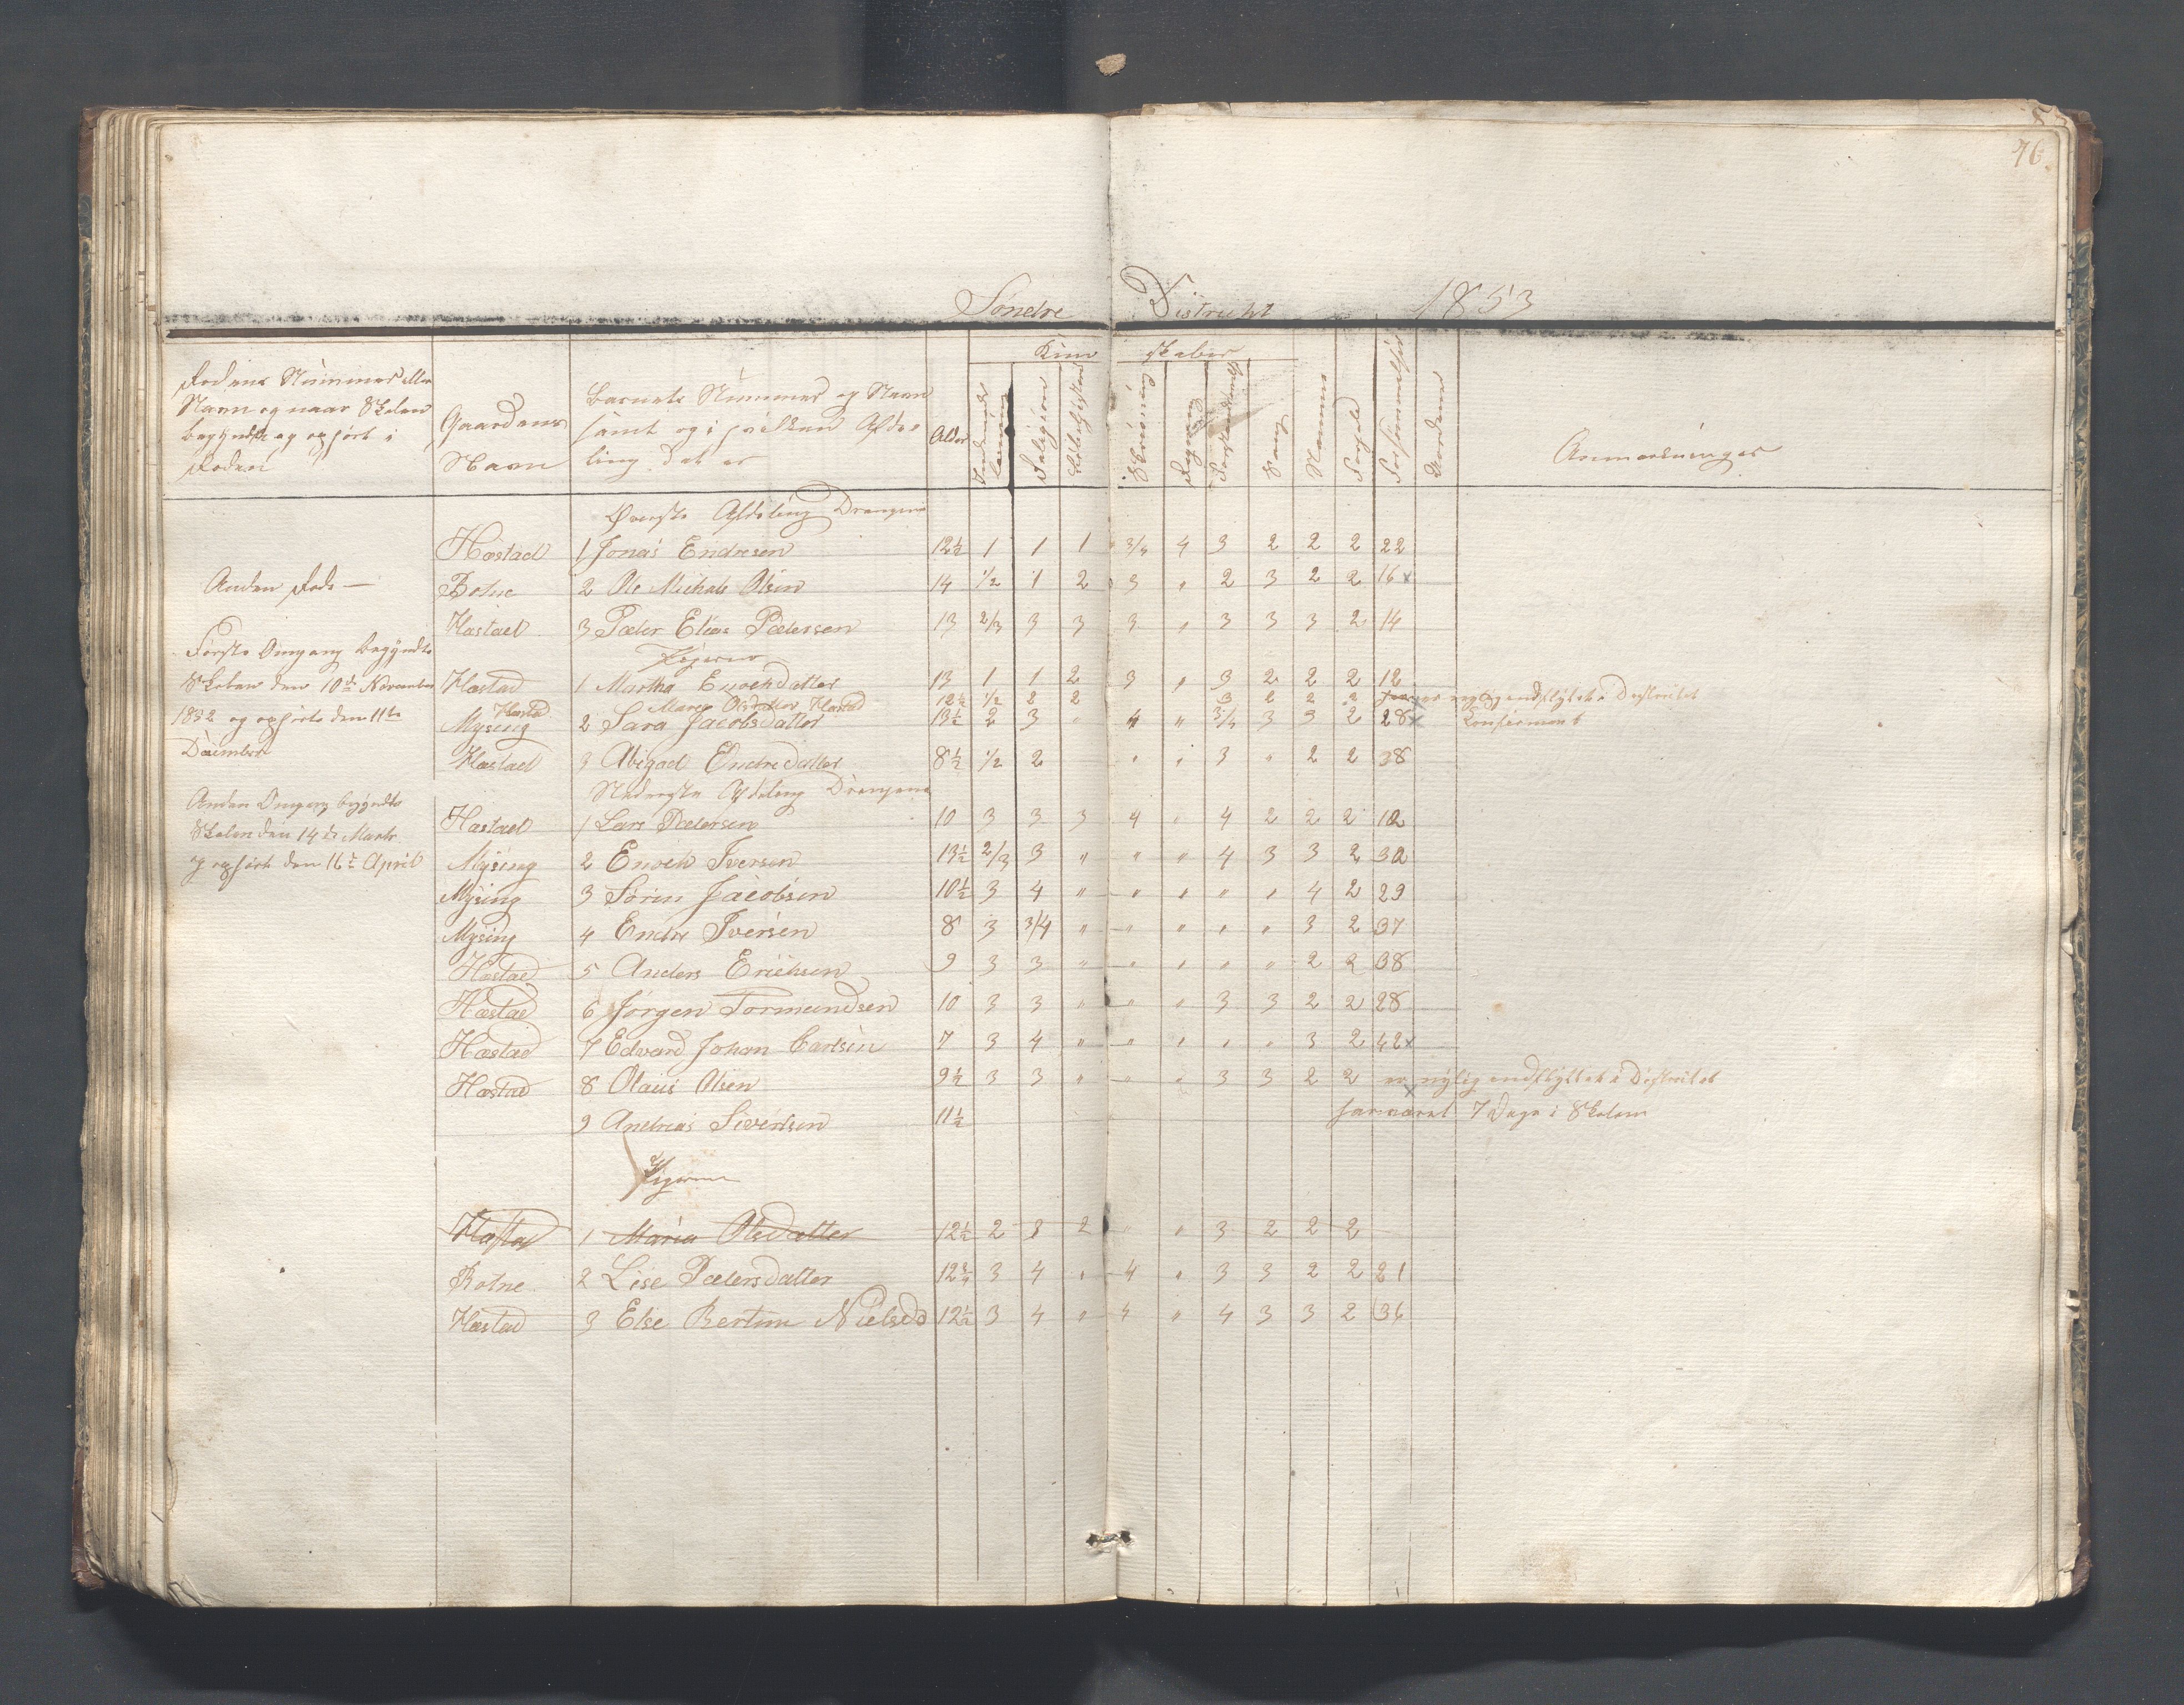 76
Søndre Districkt 1853
Rodens Nummer eller
Navn og naar Skolen
begyndte og ophørt i
Roden
Gaardens
Navn
Barnets Nummer og Navn
samt og i hvilken Afde-
ling det er
Alder
Kund skaber
Indenads
Læsning
Religion
Bibelhistorie
Skrivning
Regning
Forstandsøvelse
Sang
Nemme
Forhold
Forsømmelser
Anmærkninger
Øverste Afdeling Drengene
Hæstad 1 Jonas Endresen 12½ 1 1 1 3/4 4 3 2 2 2 22
Anden Rode —
Botne 2 Ole Michale Olsen 14 1/2 1 2 3 " 2 3 2 2 16 x
Hæstad 3 Peder Elias Pedersen 13 2/3 3 3 3 " 3 3 3 2 14
Første Omgang begyndte
Skolen den 10de November
1852 og ophørte den 11te
December
Pigerne
Hæstad 1 Martha Enochdatter 13 1 1 2 3 " 3 2 2 2 12
Maren Olsdatter Hæstad 12½ 1/2 2 2 3 2 2 2 er nylig indflyttet i Distriktet
Hæstad
Mysing 2 Sara Jacobsdatter 13½ 2 3 " 4 " 3/4 3 3 2 28 x Confirmert
Hæstad 3 Abigael Endredatter 8½ 1/2 2 " " 3 " 2 2 38
Nederste Afdeling Drengene
Anden Omgang begyndte
Skolen den 14de Marts
og ophørt den 16de April
Hæstad 1 Lars Pedersen 10 3 3 3 4 " 4 2 2 2 12
Mysing 2 Enoch Iversen 13½ 2/3 3 " " " 4 3 3 2 32
Mysing 3 Søren Jacobsen 10½ 3 4 " " " " " 4 2 29
Mysing 4 Endre Iversen 8 3 3/4 " " " " " 3 2 37
Hæstad 5 Anders Erichsen 9 3 3 " " " " " 2 2 38
Hæstad 6 Jørgen Tormundsen 10 3 3 " " " 3 3 2 2 28
Hæstad 7 Edvard Johan Carlsen 7 3 4 " " " " " 3 2 42 x
Hæstad 8 Olaus Olsen 9½ 3 3 " " " 3 3 2 2 er nylig indflyttet i Distriktet
9 Andreas Sivertsen 11½ har været 7 Dage i Skolen
Pigerne
Hæstad 1 Maria Olsdatter 12½ 2 3 2 " " 3 2 2 2
Botne 2 Lise Pedersdatter 12¾ 3 4 " 4 " 3 3 2 2 21
Hæstad 3 Else Bertine Nielsdd 12½ 3 4 " 4 " 4 3 3 2 36